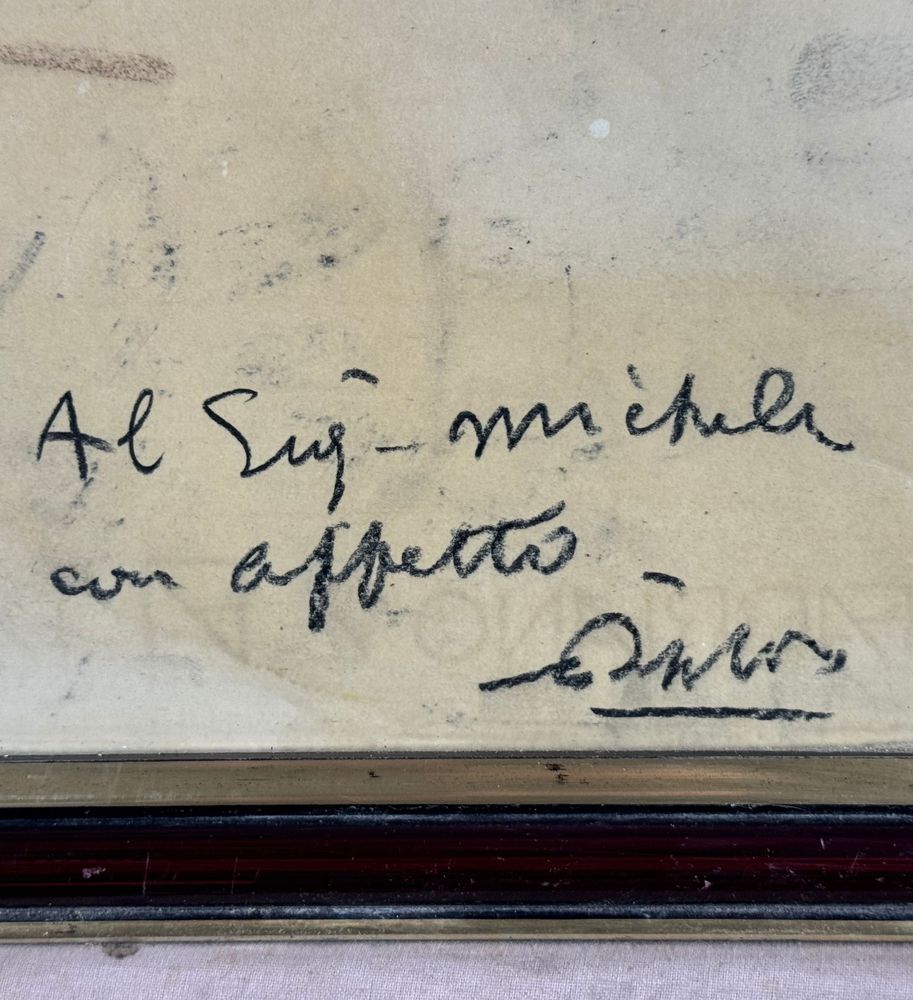 Al Sig- Michele
con affetto